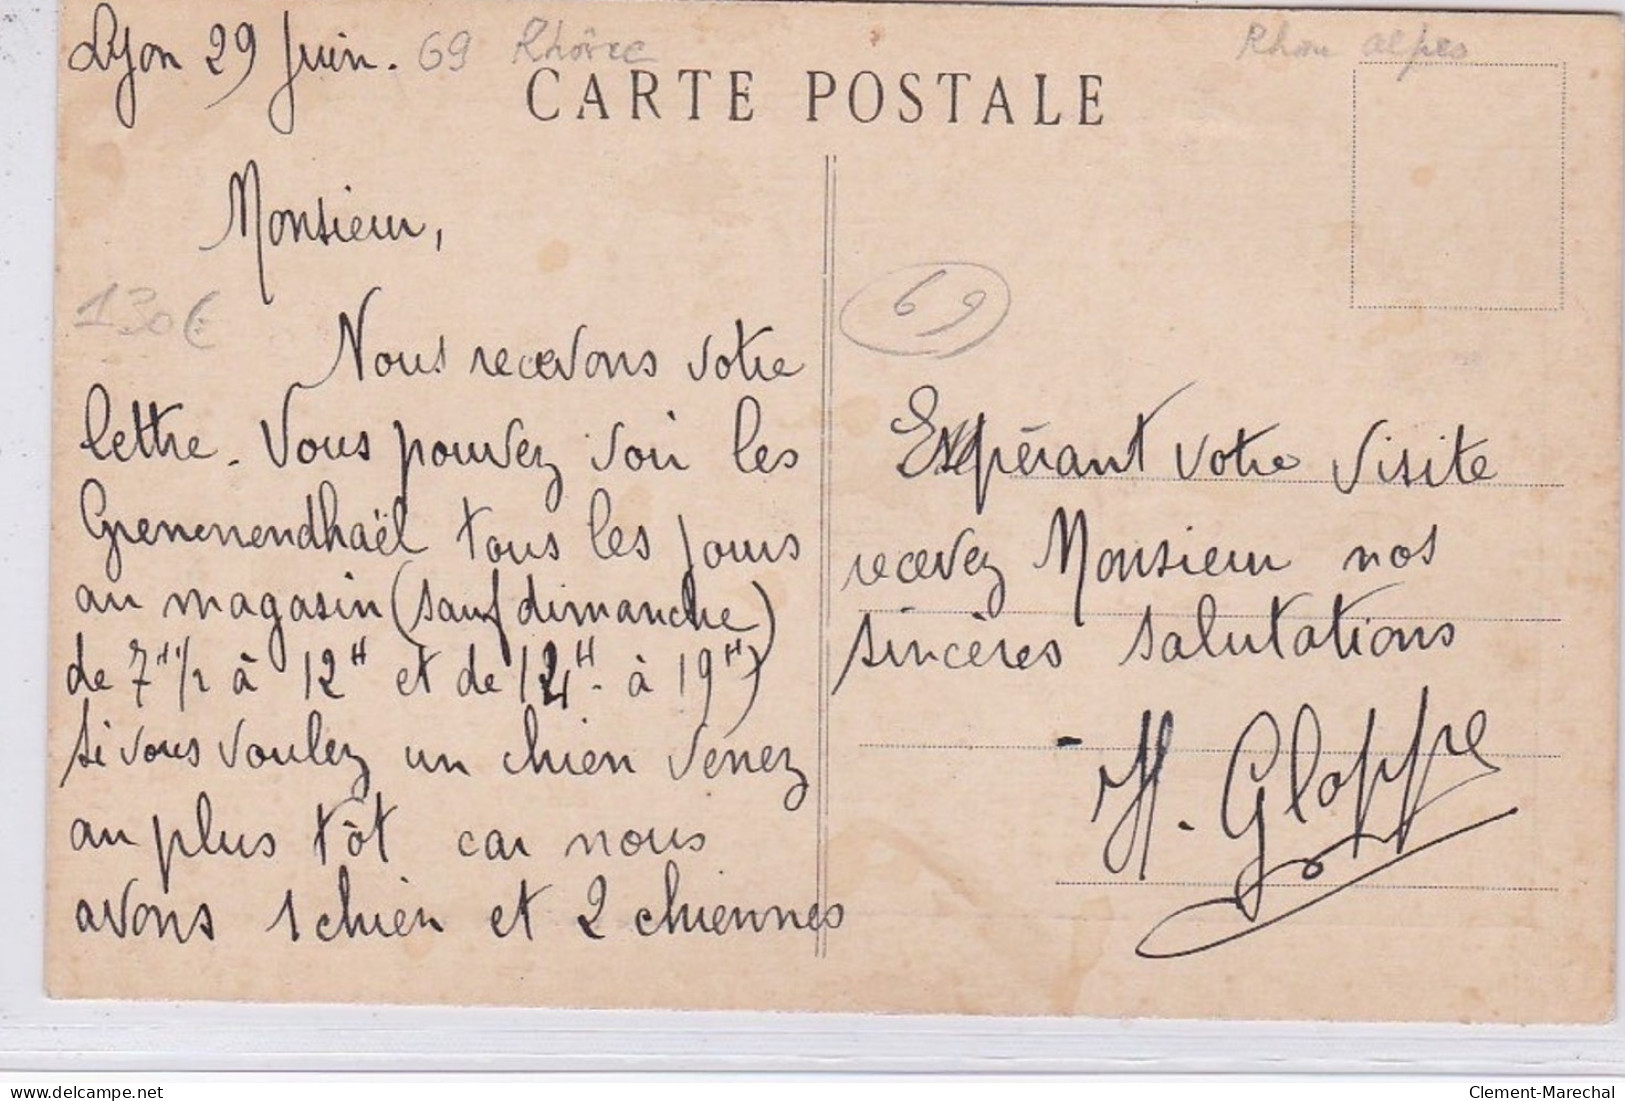 Lyon 29 Juin. 69 Rhône
Rhone alpes
CARTE POSTALE
Monsieur,
130€
69
Nous recevons votre
lettre. Vous pouvez voir les
Grennenendhaël tous les jours
au magasin (sauf dimanche)
de 7H1/2 à 12H et de 14H à 19H)
si vous voulez un chien venez
au plus tôt car nous
avons 1 chien et 2 chiennes
Espérant votre visite
recevez Monsieur nos
sincères salutations
H. Gloppe
delcampe.net
Clement-Marechal